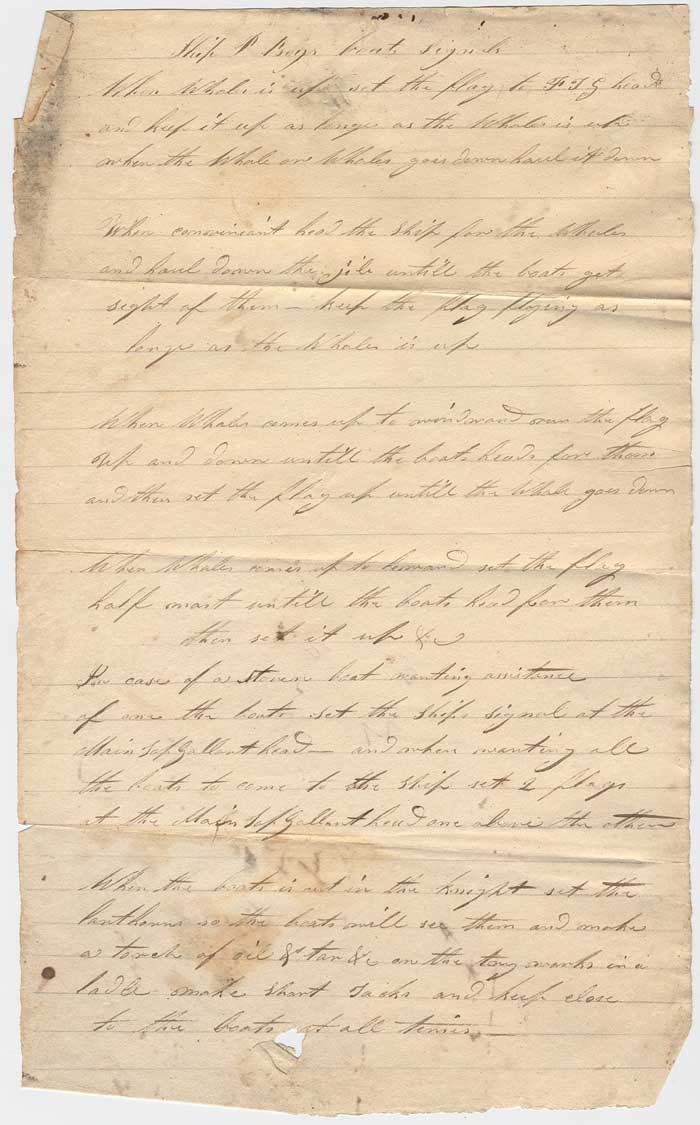 Ship P Boys boats signals
When Whales is up set the flag to F T G head
and keep it up as longe as the Whales is up
when the Whale or Whales goes down haul it down
When convinient head the Ship for the Whales
and haul down the jib untill the boats get
sight of them – keep the flag flying as
longe as the Whales is up
When Whales comes up to windward run the flag
up and down untill the boats heads for them
and then set the flag up untill the Whale goes down
When Whales comes up to leeward set the flag
half mast untill the boats head for them
then set it up &c
In case of a stoven boat wanting assistance
of one the boats set the Ships signal at the
Main Top Gallant head – and when wanting all
the boats to come to the Ship set 2 flags
at the Main Top Gallant head one above the other
When the boats is out in the knight set the
lanthorns so the boats will see them and make
a torch of oil & tar &c on the try works in a
ladle make Short Tacks and keep close
to the boats at all times –